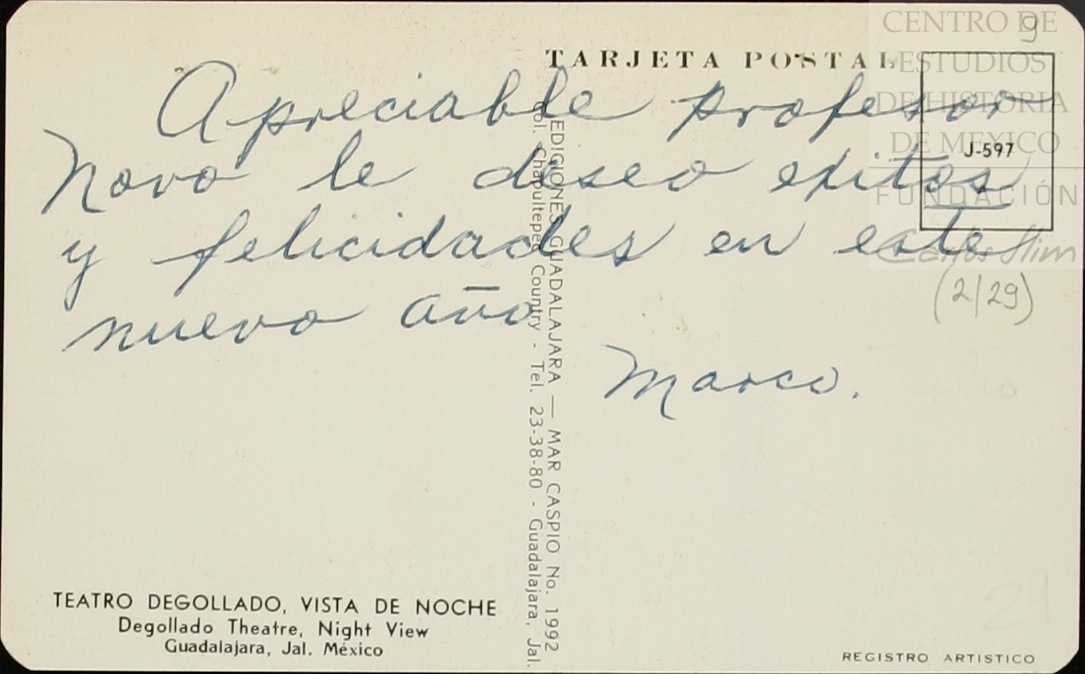 CENTRO DE
ESTUDIOS
DE HISTORIA
DE MEXICO
FUNDACIÓN
Carlos Slim
9
TARJETA POSTAL
J-597
Apreciable profesor
Novo le deseo exitos
y felicidades en este
nuevo año
Marco.
(2/29)
EDICIONES GUADALAJARA — MAR CASPIO No. 1992
Col. Chapultepec Country - Tel. 23-38-80 - Guadalajara, Jal.
TEATRO DEGOLLADO, VISTA DE NOCHE
Degollado Theatre, Night View
Guadalajara, Jal. México
29
REGISTRO ARTISTICO